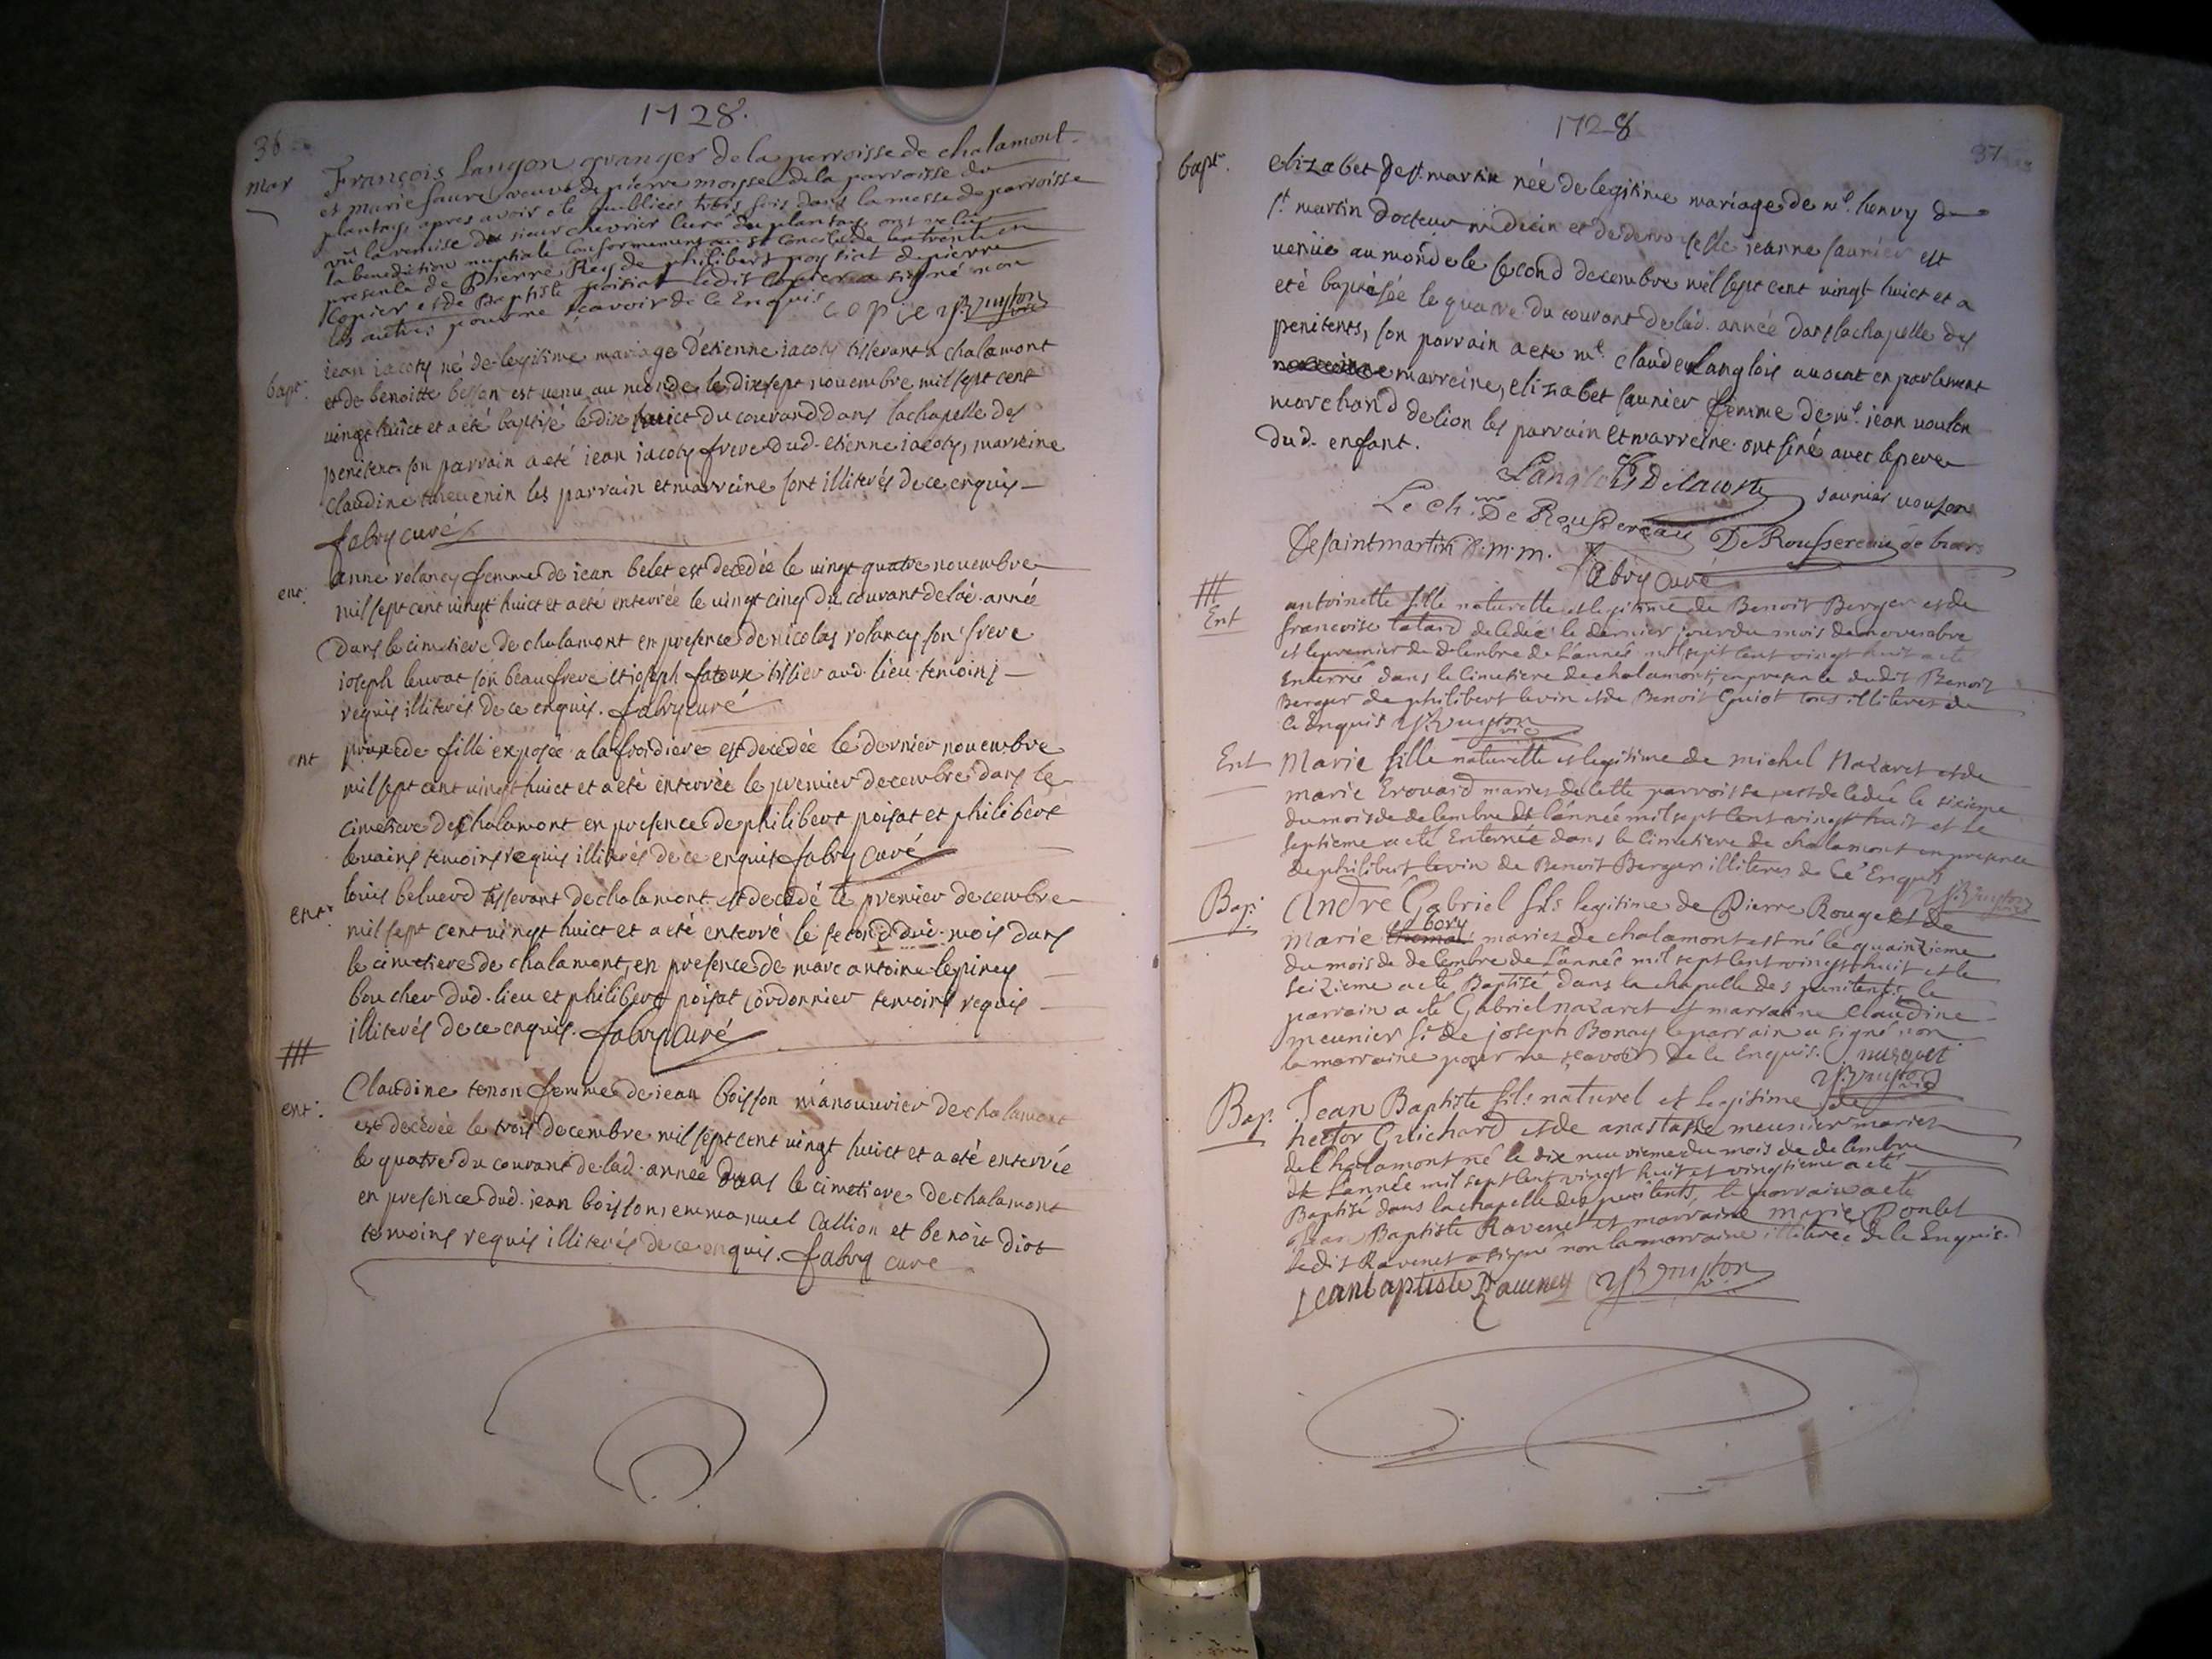 1728.
36
mar
François Langon granger de la parroisse de chalamont
et marie faure veuve de pierre moyse de la parroisse du
plantay, apres avoir ete publiées trois fois dans la messe de parroisse
vû la remise du sieur chevrier Curé du plantay ont reçus
la benediction nuptiale Conformement au st Concile de trente en
presence de Pierre Rey de philibert poysiat de pierre
Copier et de Baptiste poisiat ledit Copier a signé non
les autres pour ne scavoir de ce Enquis
copier
bapt.
iean iacoty né de legitime mariage d'etienne iacoty tisserant a chalamont
et de benoitte besson est venu au monde le dixsept novembre mil sept cent
vingt huict et a eté baptisé le dix huict du courand dans lachapelle des
penitents son parrain a eté iean iacoty frere dud. etienne iacoty, marreine
claudine thevenin les parrain et marreine sont illiterés de ce enquis
fabry curé
ent.
anne rolancy femme de iean belet est decedée le vingt quatre novembre
mil sept cent vingt huict et a eté enterrée le vingt cinq du courant de lad. année
Dans le cimetiere de chalamont en presence de nicolas rolancy son frere
ioseph leurat son beau frere et ioseph fatoux tissier aud. lieu temoins
requis illiterés de ce enquis. fabry curé
ent
praxede fille exposée a la froidiere est decedée le dernier novembre
mil sept cent vingt huict et a eté enterrée le premier decembre dans le
cimetiere de chalamont en presence de philibert poisat et philibert
levains temoins requis illiterés de ce enquis fabry curé
ent.
louis beluerd tisserant de chalamont est decedé le premier decembre
mil sept cent vingt huict et a eté enterré le second dud. mois dans
le cimetiere de chalamont, en presence de marc antoine lepiney
boucher dud. lieu et philibert poisat cordonnier temoins requis
illiterés de ce enquis. fabry curé
ent.
Claudine tenon femme de iean boisson manouvrier de chalamont
est decedée le trois decembre mil sept cent vingt huict et a eté enterrée
le quatre du courant de lad. année dans le cimetiere de chalamont
en presence dud. iean boisson, emmanuel Callion et benoit diot
temoins requis illiterés de ce enquis. fabry curé
1728
37
bapt.
elizabet de st. martin née de legitime mariage de mr. henry de
st martin docteur medecin et de demoiselle ieanne saunier est
venüe au monde le second decembre mil sept cent vingt huict et a
eté baptisée le quatre du courant de lad. année dans lachapelle des
penitents, son parrain a ete mr. claude langlois avocat en parlement
marreine, elizabet saunier femme de mr. iean voulon
marchand de lion les parrain et marreine ont siné avec le pere
dud. enfant.
Langlois Delacoste saunier voulon
Le ch. De Roussereau De Roussereau de
De saintmartin D. m. m. fabry curé
Ent
antoinette fille naturelle et legitime de Benoit Berger et de
francoise tatard decedée le dernier jour du mois de novembre
et le premier de decembre de L'année mil sept cent vingt huit a ete
Enterrée dans le Cimetiere de chalamont, en presence dudit Benoit
Berger de philibert levin et de Benoit Guiot tous illiteres de
ce Enquis
Ent
Marie fille naturelle et legitime de michel Nazaret et de
marie Erouard mariés de cette parroisse, est decedée le sixieme
du mois de decembre de l'année mil sept cent vingt huit et le
septieme a eté Enterrée dans le cimetiere de chalamont en presence
de philibert levin de Benoit Berger illiteres de ce Enquis
Bap.
André Gabriel fils legitime de Pierre Rouget et de
bory
Marie mariés de chalamont est né le quainzieme
du mois de decembre de L'année mil sept cent vingt huit et le
seizieme a eté Baptisé dans la chapelle des penitents, le
parrain a eté Gabriel nazaret et marraine Claudine
meunier fe. de joseph Bonay le parrain a signé non
la marraine pour ne scavoir de ce Enquis.
Bap.
Jean Baptiste fils naturel et legitime de
hector Guichard et de anastasie meunier mariés
de Chalamont né le dix neuvieme du mois de decembre
de L'année mil sept cent vingt huit et vingtieme a eté
Baptisé dans la chapelle des penitents, le parrain a eté
Jean Baptiste Ravenet et marraine marie Poulet
ledit Ravenet a signé non la marraine illiterée de ce Enquis.
Jean baptiste Raveney